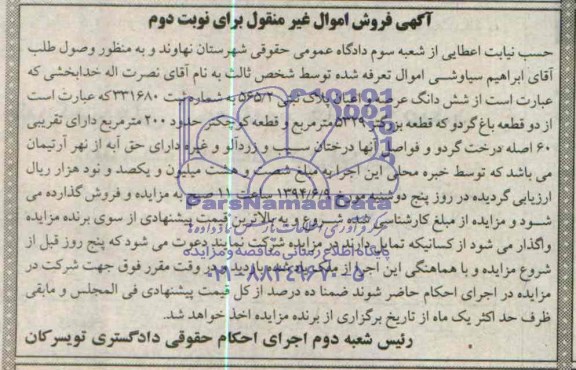 آگهی فروش اموال غیر منقول برای نوبت دوم
حسب نیابت اعطایی از شعبه سوم دادگاه عمومی حقوقی شهرستان نهاوند و به منظور وصول طلب
آقای ابراهیم سیاوشی اموال تعرفه شده توسط شخص ثالث به نام آقای نصرت اله خدابخشی که
عبارت است از شش دانگ عرصه و اعیان پلاک ثبتی ۵۶۵/۲ به شماره ثبت ۳۳۱۶۸۰ که عبارت است
از دو قطعه باغ گردو که قطعه بزرگتر ۵۳۲۹ مترمربع و قطعه کوچکتر حدود ۲۰۰ مترمربع دارای تقریبی
۶۰ اصله درخت گردو و فواصل آنها درختان سیب و زردآلو و غیره دارای حق آبه از نهر آرتیمان
می باشد که توسط خبره محلی این اجرا به مبلغ شصت و هشت میلیون و یکصد و نود هزار ریال
ارزیابی گردیده در روز پنج دوشنبه مورخ ۱۳۹۴/۶/۹ ساعت ۱۱ صبح به مزایده و فروش گذارده می
شود و مزایده از مبلغ کارشناسی شده شروع و به بالاترین قیمت پیشنهادی از سوی برنده مزایده
واگذار می شود از کسانیکه تمایل دارند در مزایده شرکت نمایند دعوت می شود که پنج روز قبل از
شروع مزایده و با هماهنگی این اجرا از ملک یاد شده بازدید و در وقت مقرر فوق جهت شرکت در
مزایده در اجرای احکام حاضر شوند ضمنا ده درصد از کل قیمت پیشنهادی فی المجلس و مابقی
ظرف حد اکثر یک ماه از تاریخ برگزاری از برنده مزایده اخذ خواهد شد.
رئیس شعبه دوم اجرای احکام حقوقی دادگستری تویسرکان
ParsNamadData
پایگاه اطلاع رسانی مناقصه و مزایده